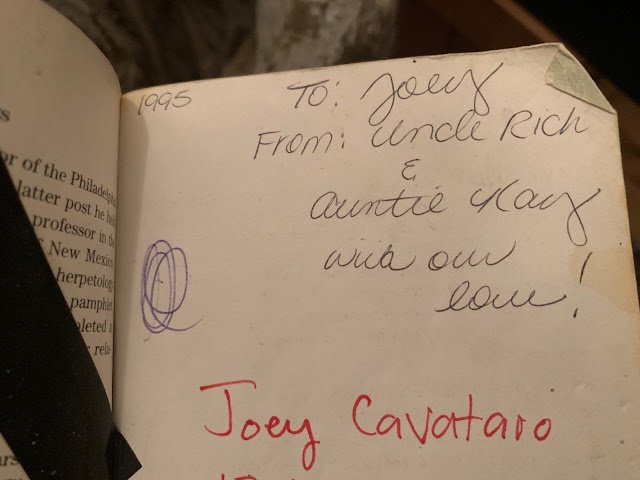 s
or of the Philadelphia
latter post he he
professor in th
New Mexico
herpetology
pamphlet
pleted a
rela-
ars
1995
To: Joey
From: Uncle Rich
&
Auntie Kay
with our
love!
Joey Cavataro